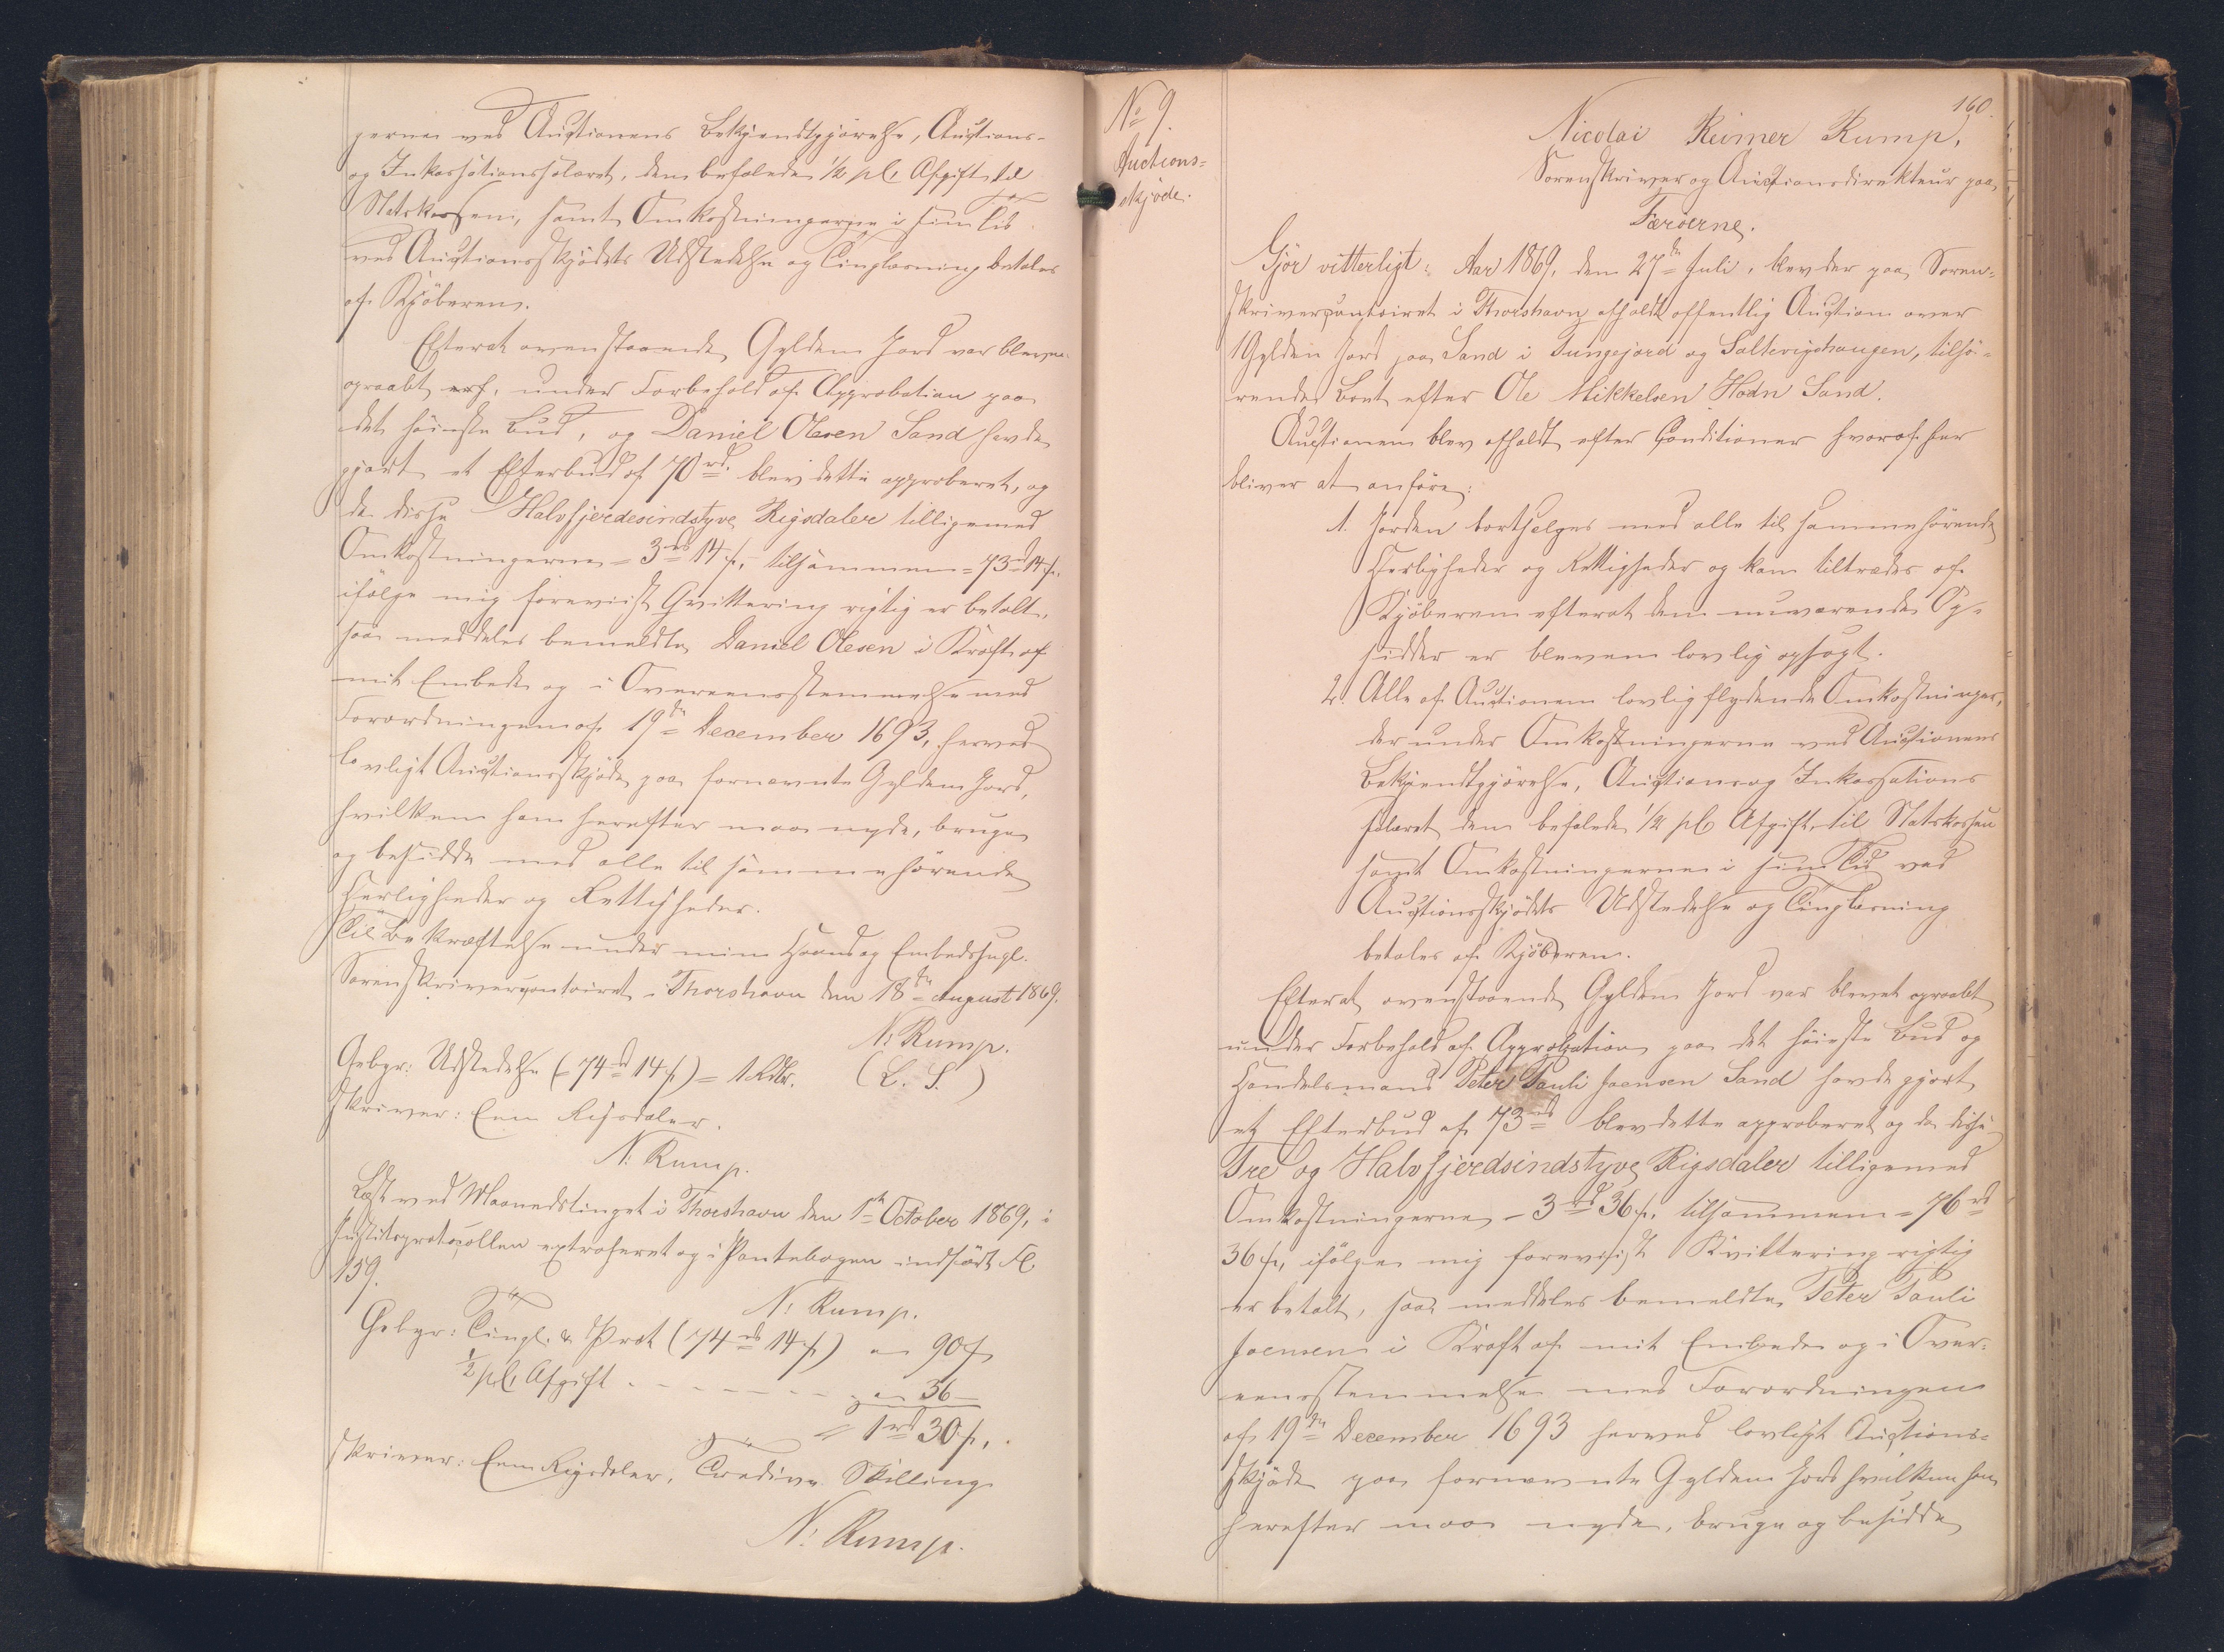 gerne ved Auctionens Bekjendtgjørelse, Auctions-
og Inkassationssalaret, den befalede 1/2 pC Afgift til
Statskassen, samt Omkostningerne i sin Tid
ved Auctionsskjødets Udstedelse og Tinglæsning betales
af Kjøberen.
Efterat ovenstaaende Gylden Jord var bleven
opraabt under Forbehold af Approbation paa
det høieste Bud, og Daniel Olesen Sand havde
gjort et Efterbud af 70 rd. blev dette approberet, og
da disse Halvfjerdesindstyve Rigsdaler tilligemed
Omkostningerne = 3 rd 14 s, tilsammen = 73 rd 14 s.
ifølge mig foreviist Qvittering rigtig er betalt,
saa meddeles bemeldte Daniel Olesen i Kraft af
mit Embede og i Overeensstemmelse med
Forordningen af 19de December 1693, herved
lovligt Auctionsskjøde paa fornævnte Gylden Jord,
hvilken han herefter maa nyde, bruge
og besidde med alle til samme hørende
Herligheder og Rettigheder.
Til Bekræftelse under min Haand og Embedssegl.
Sorenskrivercontoiret i Thorshavn den 18de August 1869.
N. Rump.
(L. S.)
Gebyr: Udstedelse (= 74 rd 14 s) = 1 Rdlr.
skriver: Een Rigsdaler.
N. Rump.
Læst ved Maanedstinget i Thorshavn den 1ste October 1869, i
Justitsprotocollen extraheret og i Pantebogen indført Fol.
159.
N. Rump.
Gebyr: Tingl. & Prot (74 rd 14 s) = 90 s
1/2 pC Afgift - - - - - - - = 36 -
= 1 rd 30 s.
skriver: Een Rigsdaler, Tredive Skilling
N. Rump.
No 9.
Auctions-
skjøde.
160.
Nicolai Reimer Rump,
Sorenskriver og Auctionsdirekteur paa
Færöerne.
Gjör vitterligt: Aar 1869, den 27de Juli, blev der paa Soren-
skrivercontoiret i Thorshavn afholdt offentlig Auction over
1 Gylden Jord paa Sand i Tungejord og Saltvigshaugen, tilhö-
rende Boet efter Ole Mikkelsen Hodn Sand.
Auctionen blev afholdt efter Conditioner hvoraf her
bliver at anføre:
1. Jorden bortsælges med alle til samme hørende
Herligheder og Rettigheder og kan tiltrædes af
Kjøberen efterat den nuværende Op-
sidder er bleven lovlig opsagt.
2. Alle af Auctionen lovlig flydende Omkostninger,
derunder Omkostningerne ved Auctionens
Bekjendtgjørelse, Auctions og Inkassations
salaret den befalede 1/2 pC Afgift til Statskassen
samt Omkostningerne i sin Tid ved
Auctionsskjødets Udstedelse og Tinglæsning
betales af Kjøberen.
Efterat ovenstaaende Gylden Jord var blevet opraabt
under Forbehold af Approbation paa det høieste Bud og
Handelsmand Peter Pauli Joensen Sand havde gjort
et Efterbud af 73 rd blev dette approberet og da disse
Tre og Halvfjerdsindstyve Rigsdaler tilligemed
Omkostningerne - 3 rd 36 s, tilsammen = 76 rd
36 s, ifølge mig foreviist Kvittering rigtig
er betalt, saa meddeles bemeldte Peter Pauli
Joensen i Kraft af mit Embede og i Over-
eensstemmelse med Forordningen
af 19de December 1693 herved lovligt Auctions-
skjøde paa fornævnte Gylden Jord hvilken han
herefter maa nyde, bruge og besidde